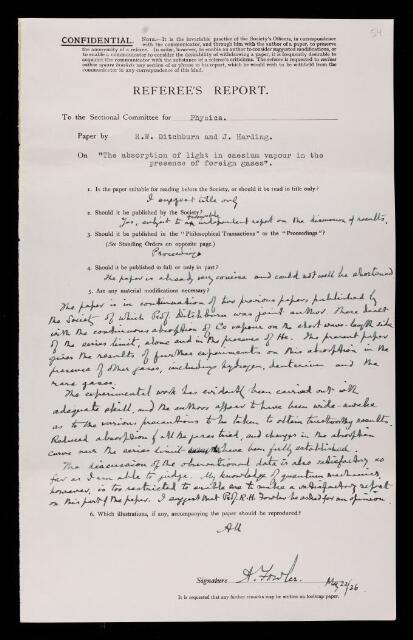 54
CONFIDENTIAL. NOTE.—It is the invariable practice of the Society's Officers, in correspondence
with the communicator, and through him with the author of a paper, to preserve
the anonymity of a referee. In order, however, to enable an author to consider suggested modifications, or
to enable a communicator to consider the desirability of withdrawing a paper, it is frequently desirable to
acquaint the communicator with the substance of a referee's criticisms. The referee is requested to
any section of or phrase in his report, which he would wish to be withheld from the
communicator in any correspondence of this kind.
REFEREE'S REPORT.
To the Sectional Committee for Physics.
Paper by R.W. Ditchburn and J. Harding.
On "The absorption of light in caesium vapour in the
presence of foreign gases".
1. Is the paper suitable for reading before the Society, or should it be read in title only?
I suggest title only
2. Should it be published by the Society?
Yes, subject to an favourable independent report on the discussion of results.
3. Should it be published in the "Philosophical Transactions" or the "Proceedings"?
(See Standing Orders on opposite page.)
Proceedings
4. Should it be published in full or only in part?
The paper is already very concise and could not well be shortened
5. Are any material modifications necessary?
The paper is in continuation of two previous papers published by
the Society of which Prof. Ditchburn was joint author. These dealt
with the continuous absorption of Cs vapour on the short wave-length side
of the series limit, alone and in the presence of He. The present paper
gives the results of further experiments on this absorption in the
presence of other gases, including hydrogen, deuterium and the
rare gases.
The experimental work has evidently been carried out with
adequate skill, and the authors appear to have been wide-awake
as to the various precautions to be taken to obtain trustworthy results.
Reduced absorption by all the gases tried, and changes in the absorption
curve near the series limit have been fully established.
The discussion of the observational data is also satisfactory so
far as I am able to judge. My knowledge of quantum mechanics,
however, is too restricted to enable me to make a satisfactory report
on this part of the paper. I suggest that Prof. R.H. Fowler be asked for an opinion.
6. Which illustrations, if any, accompanying the paper should be reproduced?
All
Signature A. Fowler. May 22/36
It is requested that any further remarks may be written on foolscap paper.